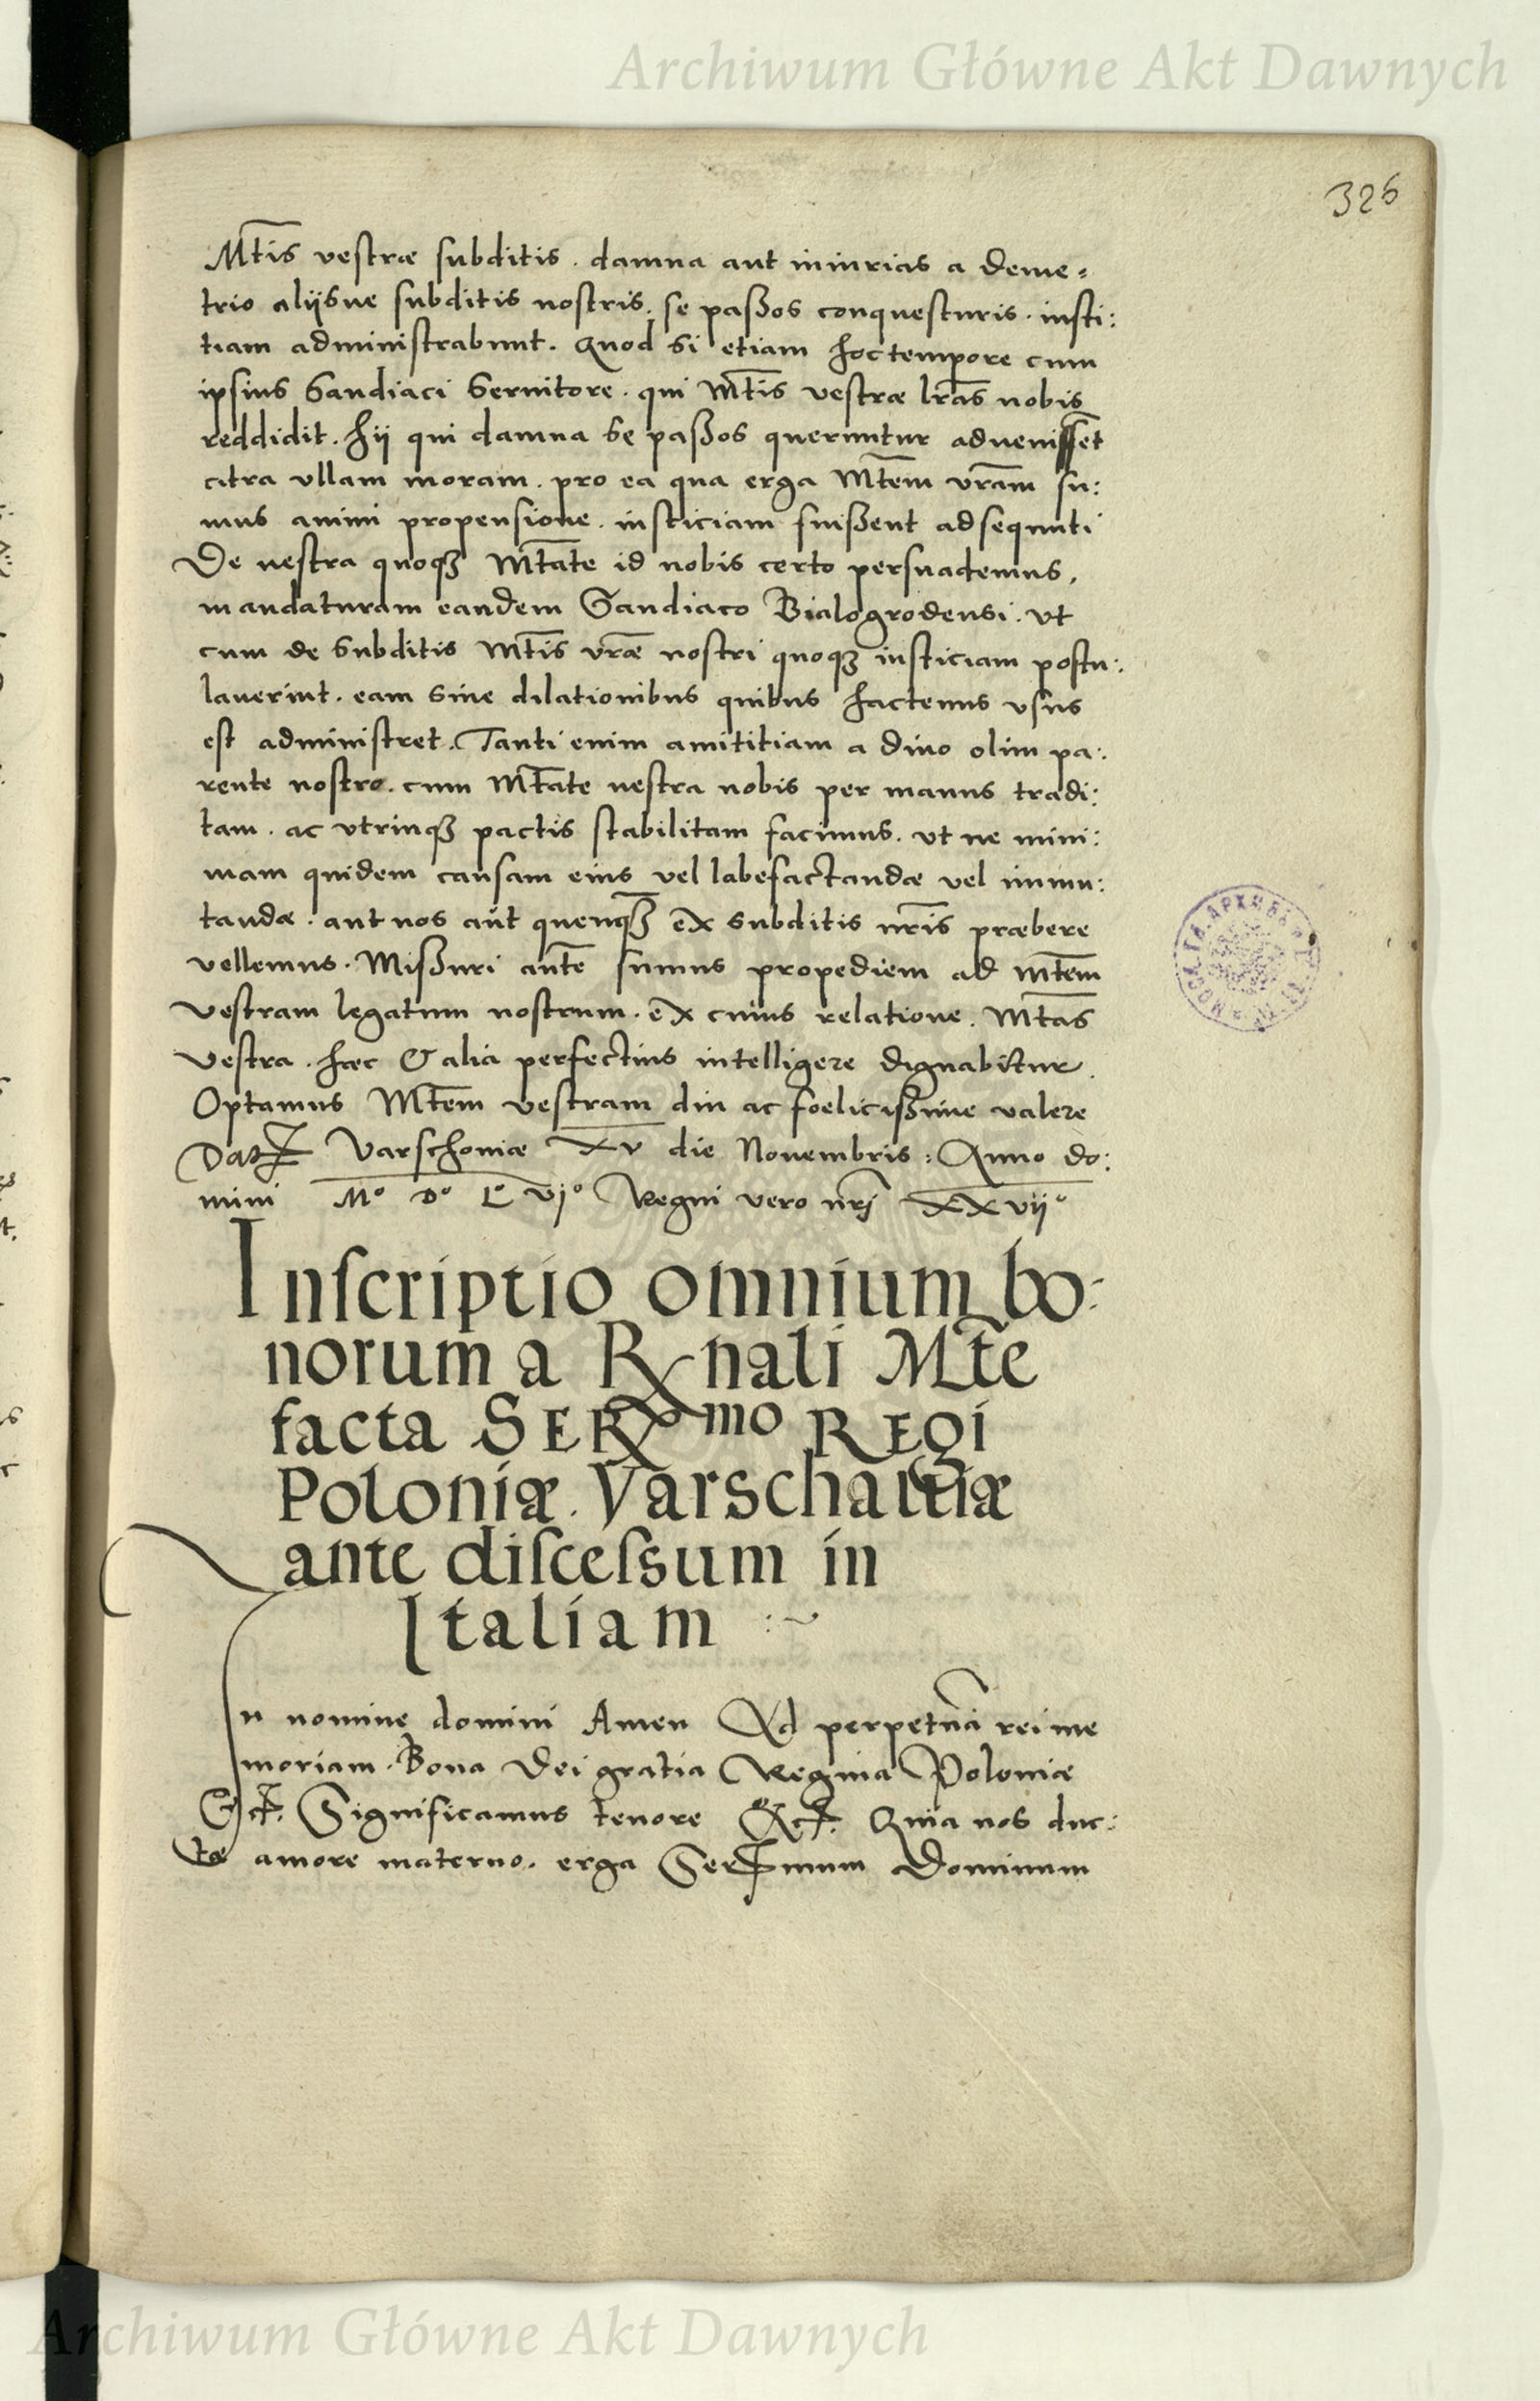 Archiwum Główne Akt Dawnych
326
Mtis vestræ subditis. damna aut iniurias a deme-
trio aliisve subditis nostris. se paßos conquesturis. iusti:
tiam administrabunt. Quod si etiam hoc tempore cum
ipsius Sandiaci servitore. qui Mtis vestræ lras nobis
reddidit. hij qui damna se paßos queruntur advenisset
citra ullam moram. pro ea qua erga Mtem vram su:
mus animi propensione. iusticiam fuißent adsequuti
De vestra quoqꝫ Mtate id nobis certo persuademus,
mandaturam eandem Sandiaco Bialogrodensi. ut
cum de subditis Mtis vræ nostri quoqꝫ iusticiam postu:
laverint. eam sine dilationibus quibus hactenus usus
est administret. Tanti enim amititiam a divo olim pa:
rente nostro. cum Mtate vestra nobis per manus tradi:
tam. ac utrinqꝫ pactis stabilitam facimus. ut ne mini:
mam quidem causam eius vel labefactandæ vel immu:
tandæ. aut nos aut quenqꝫ ex subditis nris præbere
vellemus. Mißuri ante sumus propediem ad Mtem
vestram legatum nostrum. ex cuius relatione. Mtas
vestra. hæc & alia perfectius intelligere dignabitur.
Optamus Mtem vestram diu ac foelicißime valere
Dat Varschoviæ XV die Novembris: Anno do:
mini Mº Dº Lº vjº Regni vero nrj XXvijº
Inscriptio omnium bo-
norum a Rnali Mte
facta SERmo REgi
Poloniæ. Varschaviæ
ante discessum in
Italiam :~
In nomine domini Amen Ad perpetuā rei me
moriam. Bona Dei gratia Regina Poloniæ
Etc. Significamus tenore Etc. Quia nos duc:
tæ amore materno. erga Sermum Dominum
Archiwum Główne Akt Dawnych